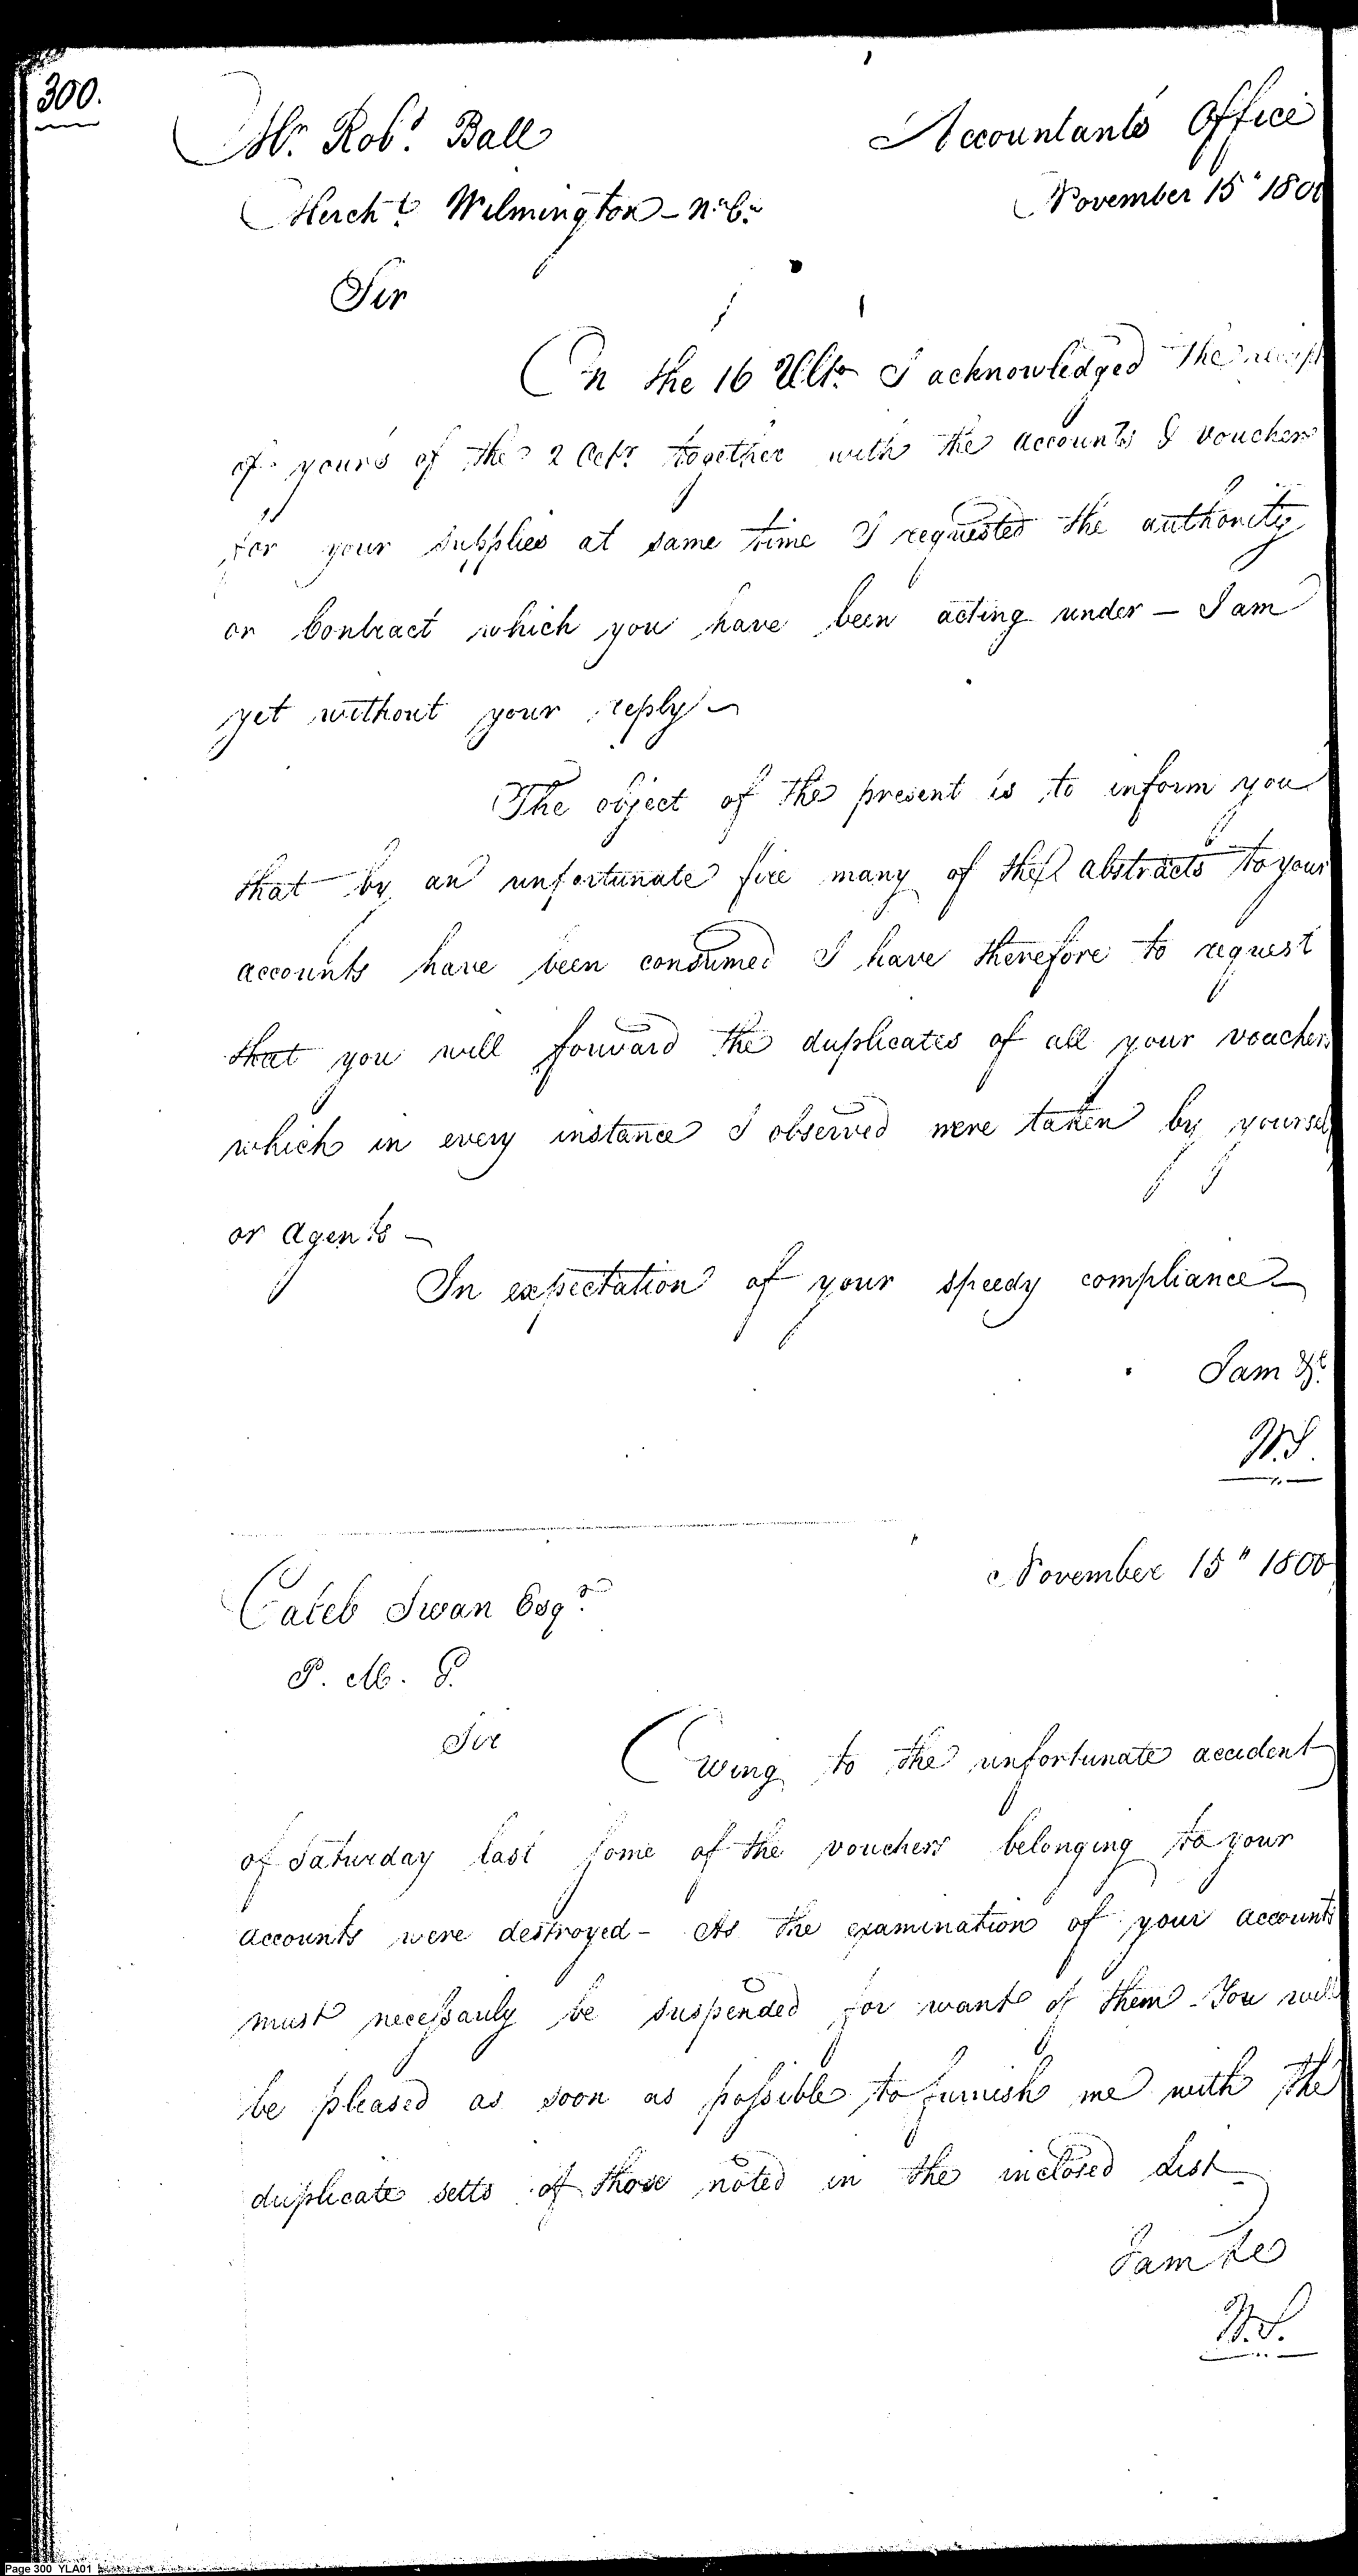 300.
Mr. Robt. Ball
Accountants Office
Mercht. Wilmington - No. Ca.
November 15" 1800
Sir
On the 16 Ulto. I acknowledged the receipt
of yours of the 2 Octr. together with the accounts & vouchers
for your supplies at same time I requested the authority
or Contract which you have been acting under - I am
yet without your reply -
The object of the present is to inform you
that by an unfortunate fire many of the abstracts to your
accounts have been consumed I have therefore to request
that you will forward the duplicates of all your vouchers
which in every instance I observed were taken by yourself
or Agents -
In expectation of your speedy compliance
I am &c.
W.S.
November 15" 1800
Caleb Swan Esqr.
P. M. G.
Sir
Owing to the unfortunate accident
of Saturday last some of the vouchers belonging to your
accounts were destroyed - As the examination of your accounts
must necessarily be suspended for want of them - You will
be pleased as soon as possible to furnish me with the
duplicate setts of those noted in the inclosed List -
I am &c
W.S.
Page 300 YLA01